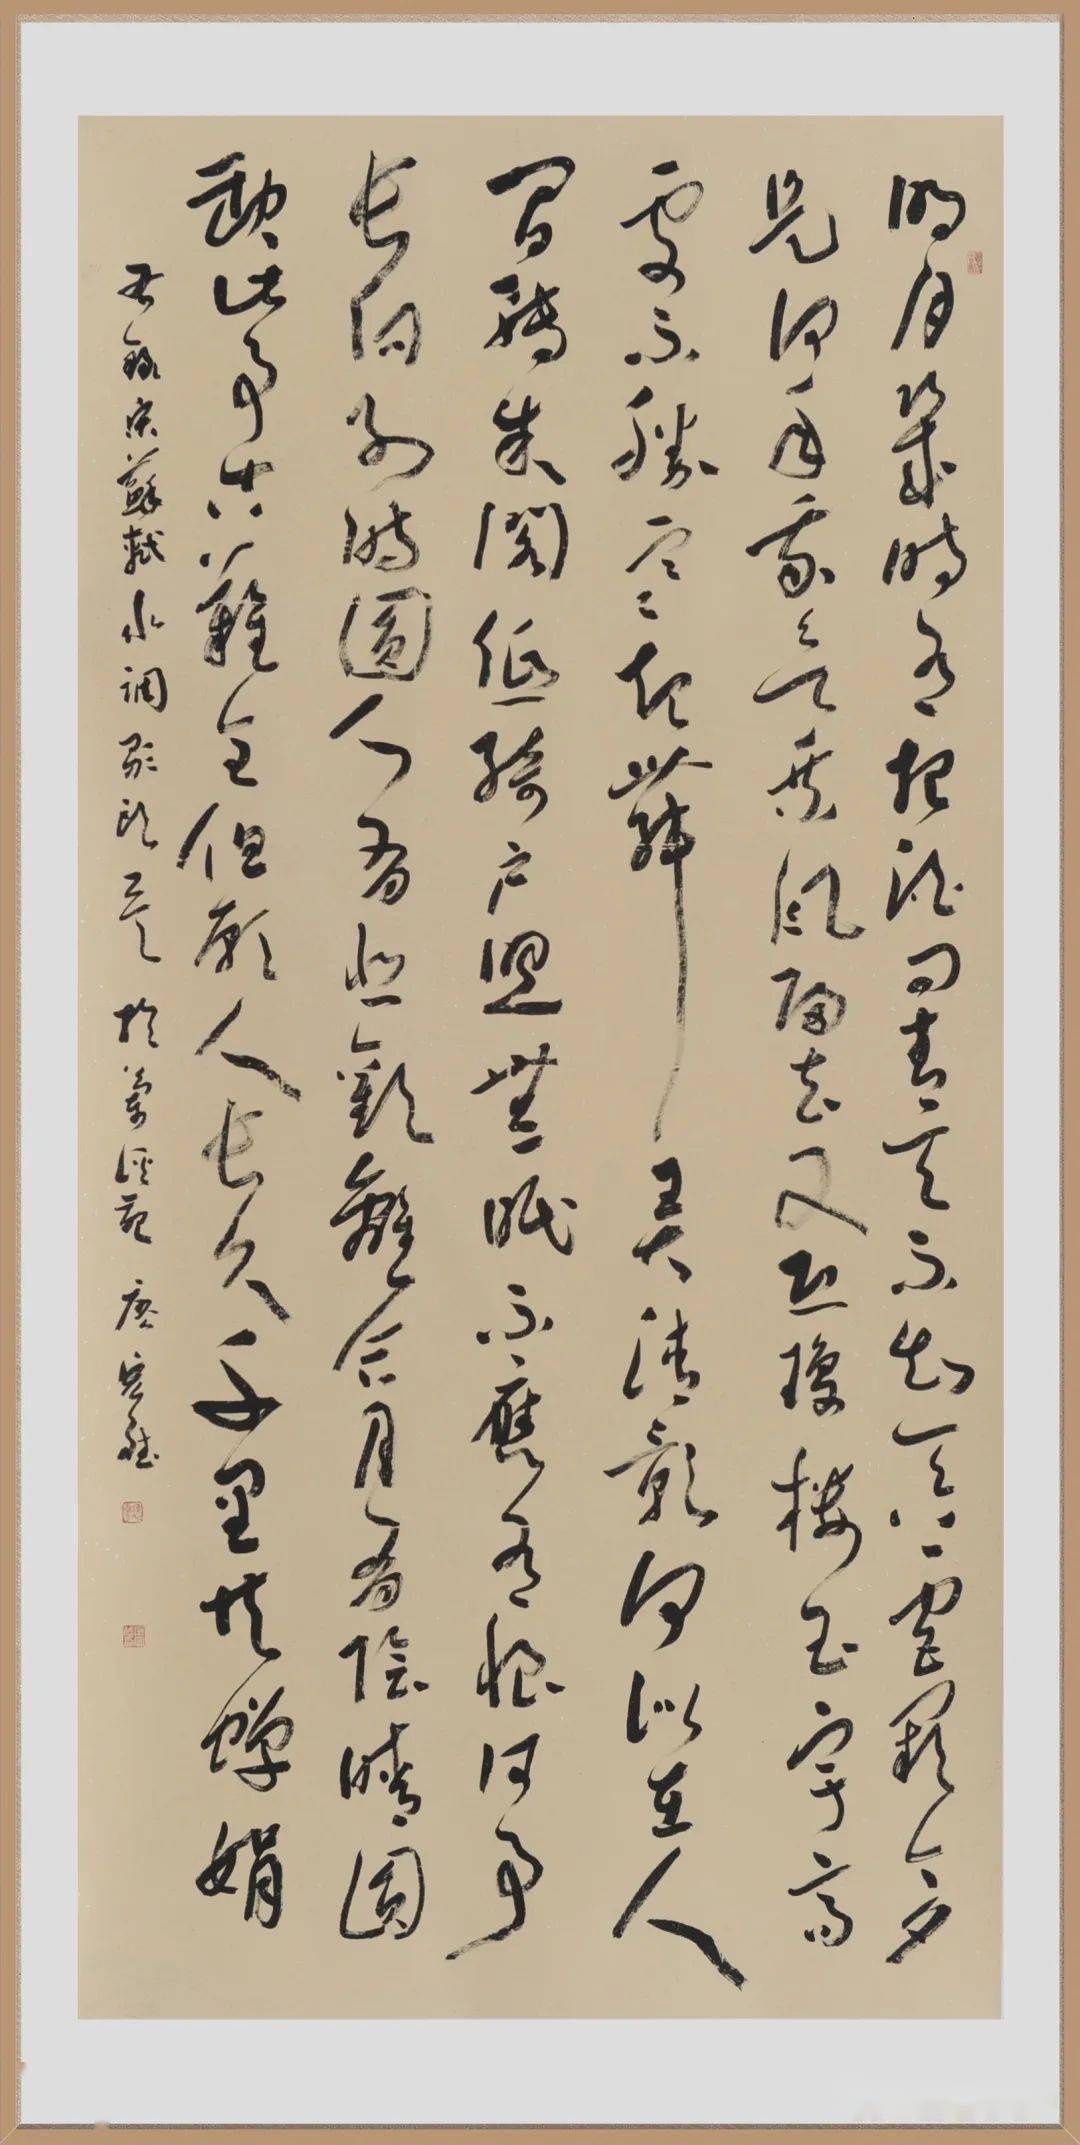 明月幾時有把酒問青天不知天上宮闕今夕
是何年我欲乘風歸去又恐瓊樓玉宇高
處不勝寒起舞弄清影何似在人
間轉朱閣低綺戶照無眠不應有恨何事
長向別時圓人有悲歡離合月有陰晴圓
缺此事古難全但願人長久千里共嬋娟
錄宋蘇軾水調歌頭 於